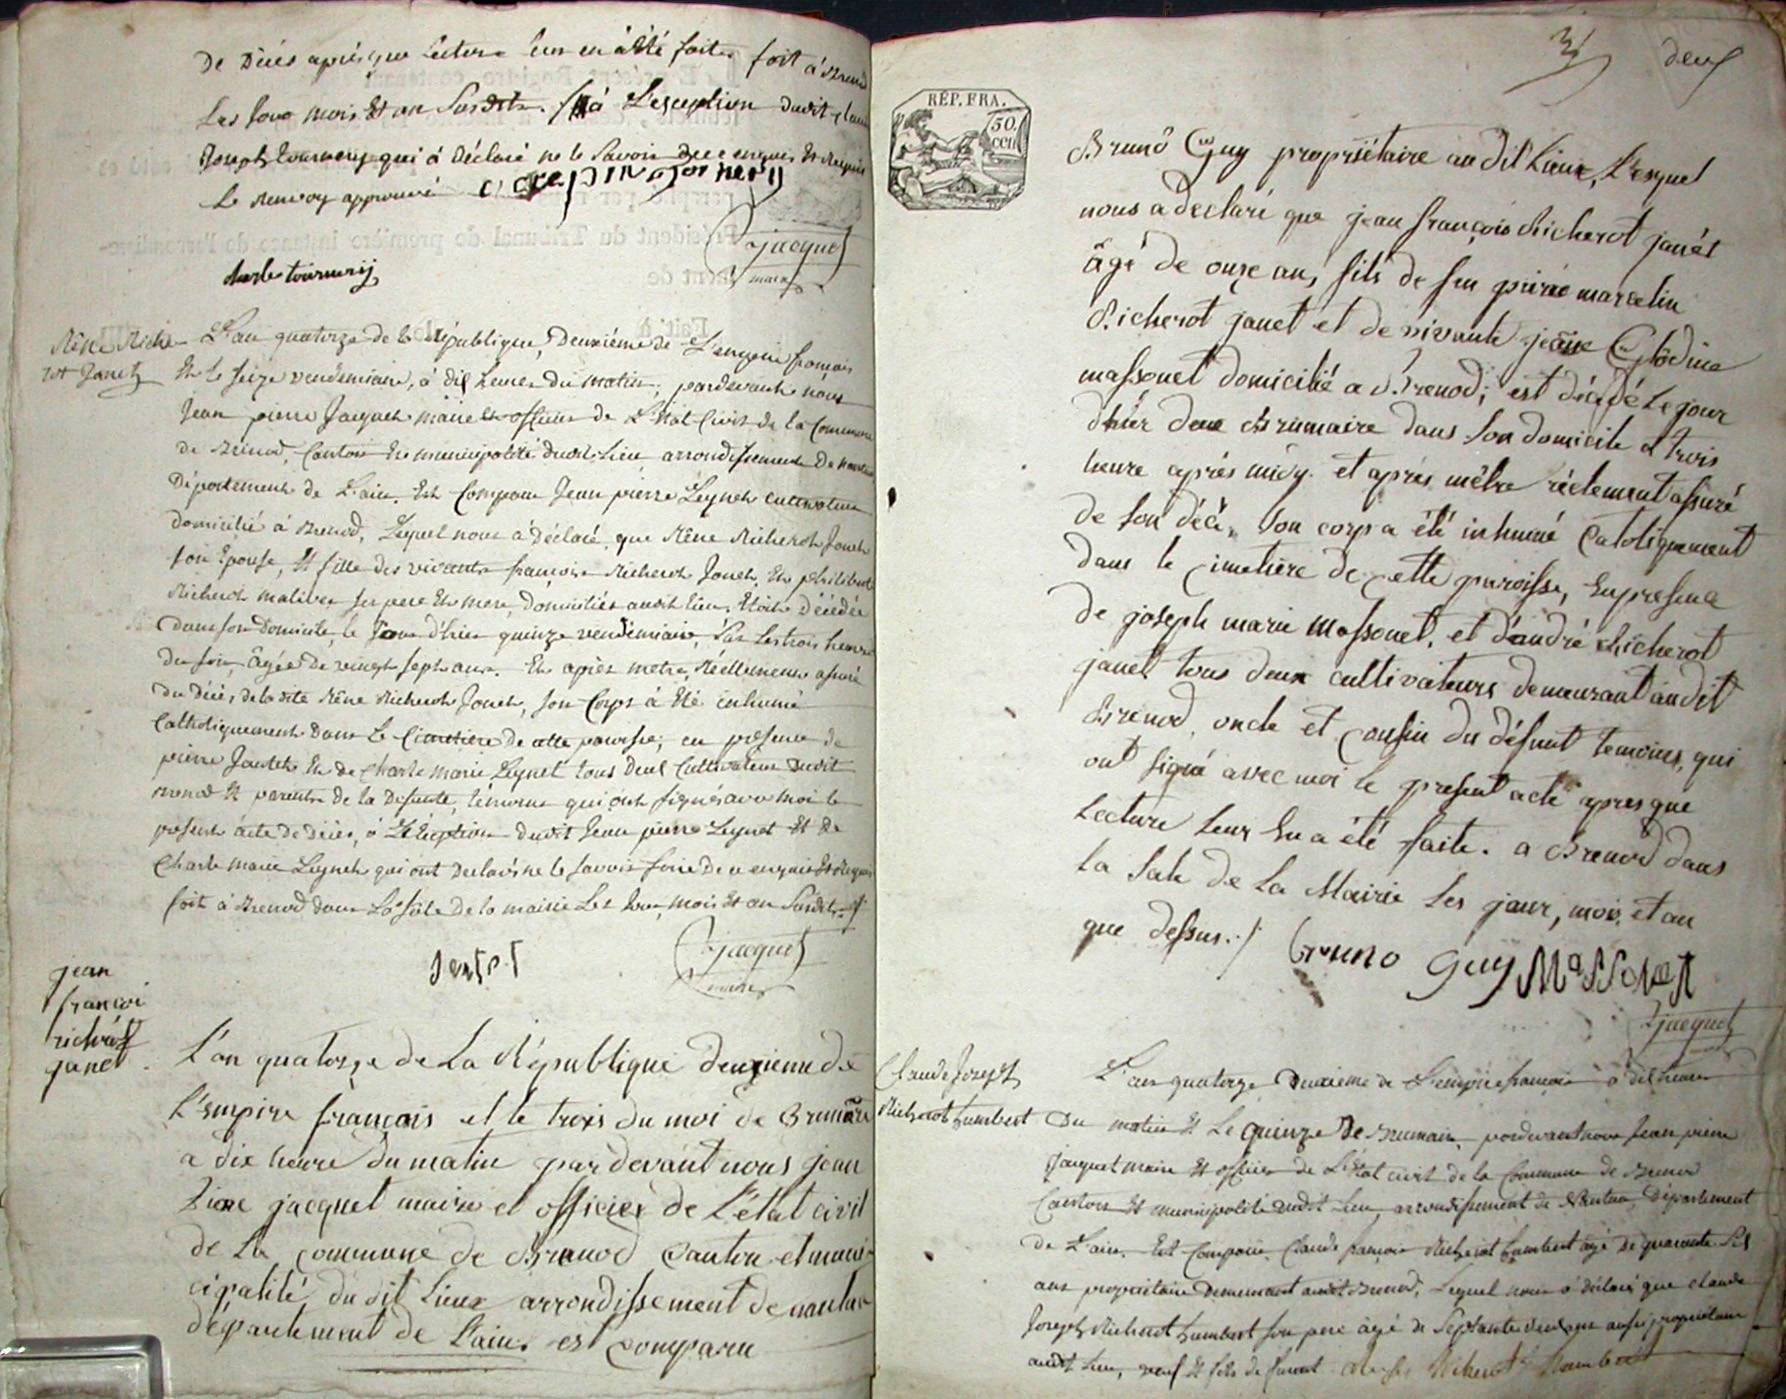 de Décés après que Lecture leur en à été faite, fait à Brenod
Les Jour mois Et an Susdits. /. à L'exception dudit
Joseph tournery qui à Déclaré ne le Savoir De ce enquis Et Requis
Le Renvoy approuvé
jacquet
maire
charle tournerÿ
Rène Riche
rot Janet
L'an quatorze de la République, Deuxiéme de L'empire françois
Et le Seize vendemiaire, à dix heures du matin, pardevant nous
Jean pierre Jacquet maire et officier de L'Etat Civil de la Commune
de Brénod, Canton Et municipalité dudit Lieu arrondissement De nantua
Département de L'ain. Est Comparu Jean pierre Leynet cultivateur
domicilié à Brenod, Lequel nous à déclaré que Rène Richerot Janet
son Epouse, Et fille des vivants françois Richerot Janet, Et philiberte
Richerot mativer ses pere Et mere, Domiciliés audit lieu, Etoit Décédée
Dans son Domicile, le Jour d'hier quinze vendemiaire, Sur Les trois heures
du soir, âgée de vingt sept ans. Et après m'etre Réellement assuré
du Décés de la dite Rène Richerot Janet, son Corps à Eté inhumé
Catholiquement dans Le Cimetiere de cette paroisse; en présence de
pierre Jantet Et de Charle marie Leynet tous deux Cultivateurs dudit
Brenod Et parents de la Defunte, témoins qui ont signés avec moi le
présent acte de décés, à L'Exception dudit Jean pierre Leynet Et de
Charle marie Leynet qui ont declarés ne le savoir faire De ce enquis Et Requis
fait à Brenod dans La Sale de la mairie Les Jour, mois Et an Susdits. /.
jantet
jacquet
maire
jean
françoi
richerot
janet
L'an quatorze de La République deuxieme de
L'empire françois et le trois du moi de Brumaire
a dix heure du matin par devant nous jean
Piere jacquet maire et officier de L'état civil
de La commune de Brenod Canton et muni-
cipalité du dit Lieux arrondissement de nantua
département de L'ain. est comparu
3 deux
RÉP. FRA.
50
cen
Bruno Guy propriétaire au dit Lieux, Lesquel
nous a declaré que jean françois Richerot janet
âgé de onze an, fils de feu piére marcelin
Richerot janet et de vivante jeane Clodine
massonet domicilié a Brenod; est décédé Le jour
d'hier deux Brumaire dans son domicile a trois
heure après midy. et après m'être réelement assuré
de son décé, Son corp a été inhumé Catoliquement
dans le cimetiere de cette paroisse, En presence
de joseph marie massonet, et d'andré Richerot
janet tous deux cultivateurs demeurant au dit
Brenod, oncle et cousin du défunt temoins, qui
ont signé avec moi le present acte apres que
Lecture Leur En a été faite. a Brenod dans
la Sale de La Mairie Les jour, mois, et an
que dessus. /. Bruno Guy MaSSoNet
jacquet
Claude Joseph
Richerot humbert
L'an quatorze Deuxieme de L'empire françois à dix heures
Du matin Et Le quinze De Brumaire, pardevant nous Jean pierre
Jacquet maire Et officier de L'Etat civil de la Commune de Brenod
Canton Et municipalité dudit Lieu, arrondissement de Nantua, Département
de L'ain. Est Comparu Claude françois Richerot humbert âgé de quarante Six
ans propriétaire Demeurant audit Brenod, Lequel nous à déclaré que claude
Joseph Richerot humbert son pere âgé de Septante deux ans aussi propriétaire
audit Lieu, veuf Et fils de furent Richerot humbert